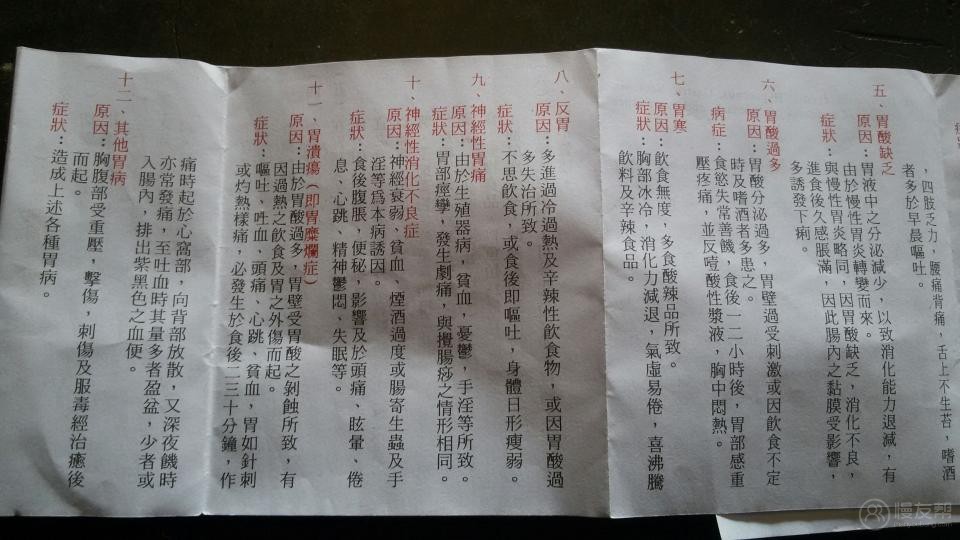 ，四肢乏力，腰痛背痛，舌上不生苔，嗜酒
者多於早晨嘔吐。
五、胃酸缺乏
原因：胃液中之分泌減少，以致消化能力退減，有
由於慢性胃炎轉變而來。
症狀：與慢性胃炎略同，因胃酸缺乏，消化不良，
進食後久感脹滿，因此腸內之黏膜受影響，
多誘發下痢。
六、胃酸過多
原因：胃酸分泌過多，胃壁過受刺激或因飲食不定
時及嗜酒者多患之。
病症：食慾失常善饑，食後一二小時後，胃部感重
壓疼痛，並反噎酸性漿液，胸中悶熱。
七、胃寒
原因：飲食無度，多食酸辣品所致。
症狀：胸部冰冷，消化力減退，氣虛易倦，喜沸騰
飲料及辛辣食品。
八、反胃
原因：多進過冷過熱及辛辣性飲食物，或因胃酸過
多失治所致。
症狀：不思飲食，或食後即嘔吐，身體日形瘦弱。
九、神經性胃痛
原因：由於生殖器病，貧血，憂鬱，手淫等所致。
症狀：胃部痙攣，發生劇痛，與攪腸痧之情形相同。
十、神經性消化不良症
原因：神經衰弱、貧血、煙酒過度或腸寄生蟲及手
淫等爲本病誘因。
症狀：食後腹脹，便秘，影響及於頭痛、眩暈、倦
息、心跳、精神鬱悶、失眠等。
十一、胃潰瘍（即胃糜爛症）
原因：由於胃酸過多，胃壁受胃酸之剝蝕所致，有
因過熱之飲食及胃之外傷而起。
症狀：嘔吐、吐血、頭痛、心跳、貧血，胃如針刺
或灼熱樣痛，必發生於食後二三十分鐘，作
痛時起於心窩部，向背部放散，又深夜饑時
亦常發痛，至吐血時其量多者盈盆，少者或
入腸內，排出紫黑色之血便。
十二、其他胃病
原因：胸腹部受重壓，擊傷，刺傷及服毒經治癒後
而起。
症狀：造成上述各種胃病。
慢友幫